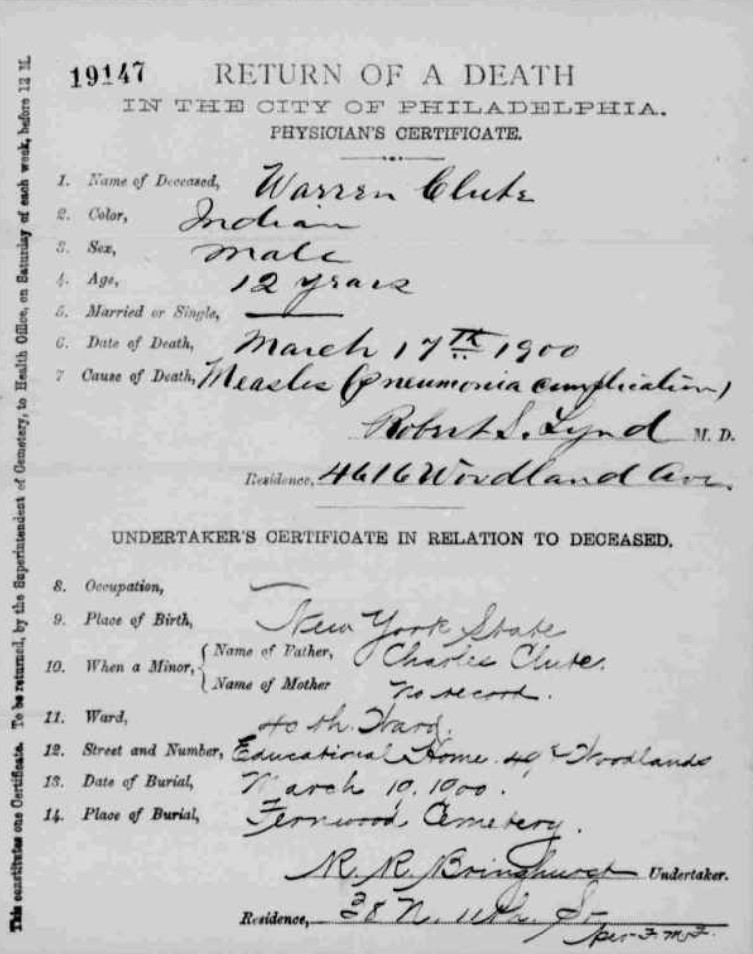 19147
RETURN OF A DEATH
IN THE CITY OF PHILADELPHIA.
PHYSICIAN'S CERTIFICATE.
1. Name of Deceased, Warren Clute
2. Color, Indian
3. Sex, Male
4. Age, 12 years
5. Married or Single, —
6. Date of Death, March 17th 1900
7 Cause of Death, Measles (Pneumonia complication)
Robert S. Lynd M. D.
Residence, 4616 Woodland Ave.
UNDERTAKER'S CERTIFICATE IN RELATION TO DECEASED.
8. Occupation, —
9. Place of Birth, New York State
10. When a Minor, { Name of Father, Charles Clute.
{ Name of Mother No record.
11. Ward, 40th Ward.
12. Street and Number, Educational Home. 49 & Woodlands
13. Date of Burial, March 1900.
14. Place of Burial, Fernwood Cemetery.
R. R. Bringhurst Undertaker.
Residence, 38 N. 11th. St
per F. McF.
This constitutes one Certificate. To be returned, by the Superintendent of Cemetery, to Health Office, on Saturday of each week, before 12 M.